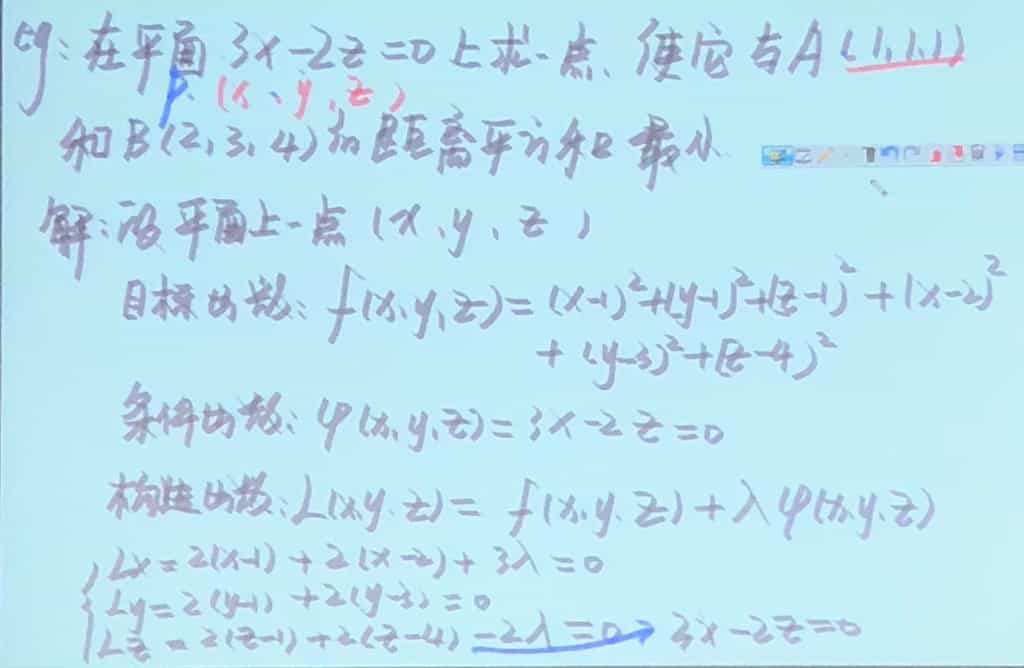 eg: 在平面 3x-2z=0 上求一点, 使它与A(1,1,1)
P. (x、y,z)
和B(2,3,4)的距离平方和最小.
解: 设平面上一点 (x、y、z)
目标函数: f(x,y,z)=(x-1)²+(y-1)²+(z-1)²+(x-2)²
+(y-3)²+(z-4)²
条件函数: φ(x,y,z)=3x-2z=0
构造函数: L(x,y,z)= f(x,y,z)+λφ(x,y,z)
Lx=2(x-1)+2(x-2)+3λ=0
Ly=2(y-1)+2(y-3)=0
Lz=2(z-1)+2(z-4)-2λ=0→3x-2z=0